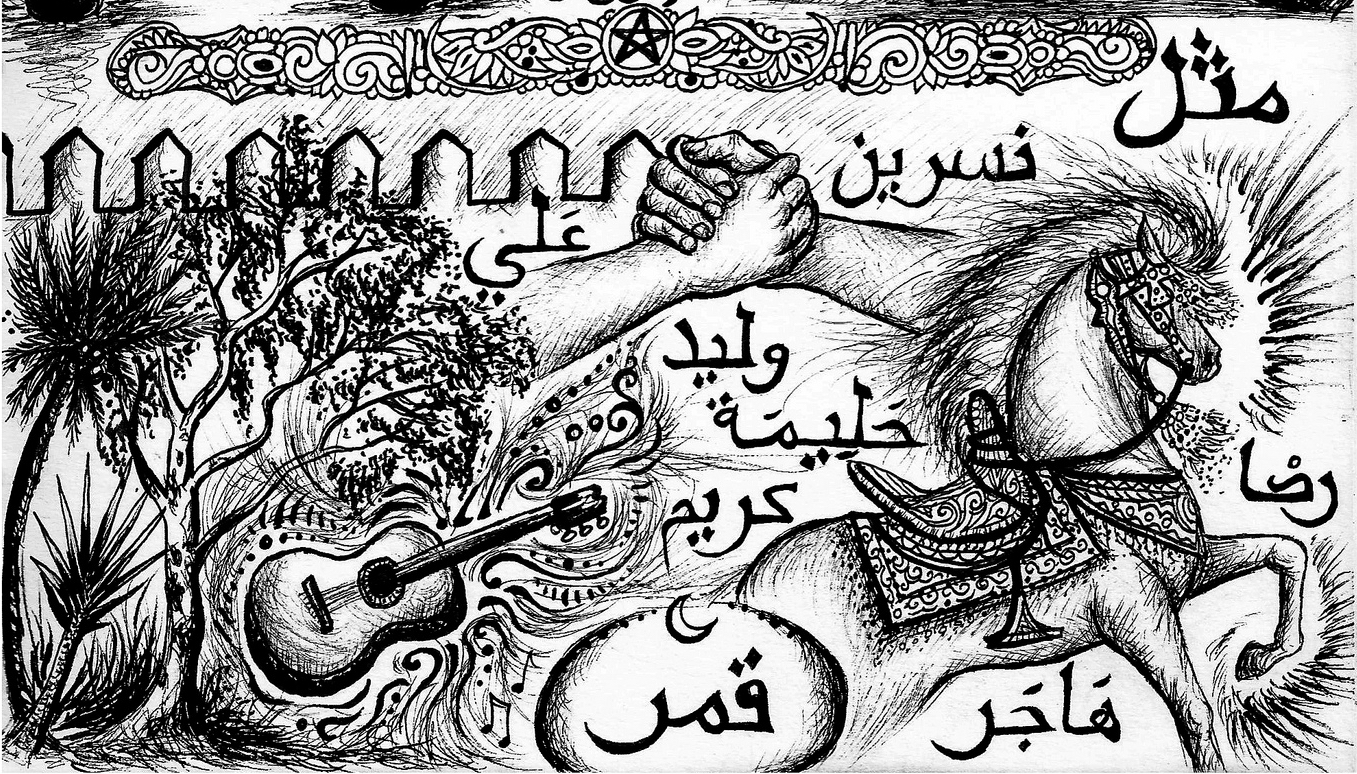 مثل
نسرين
عَلي
وليد
حَلِيمَة
كريم
رضا
قمر
هَاجَر